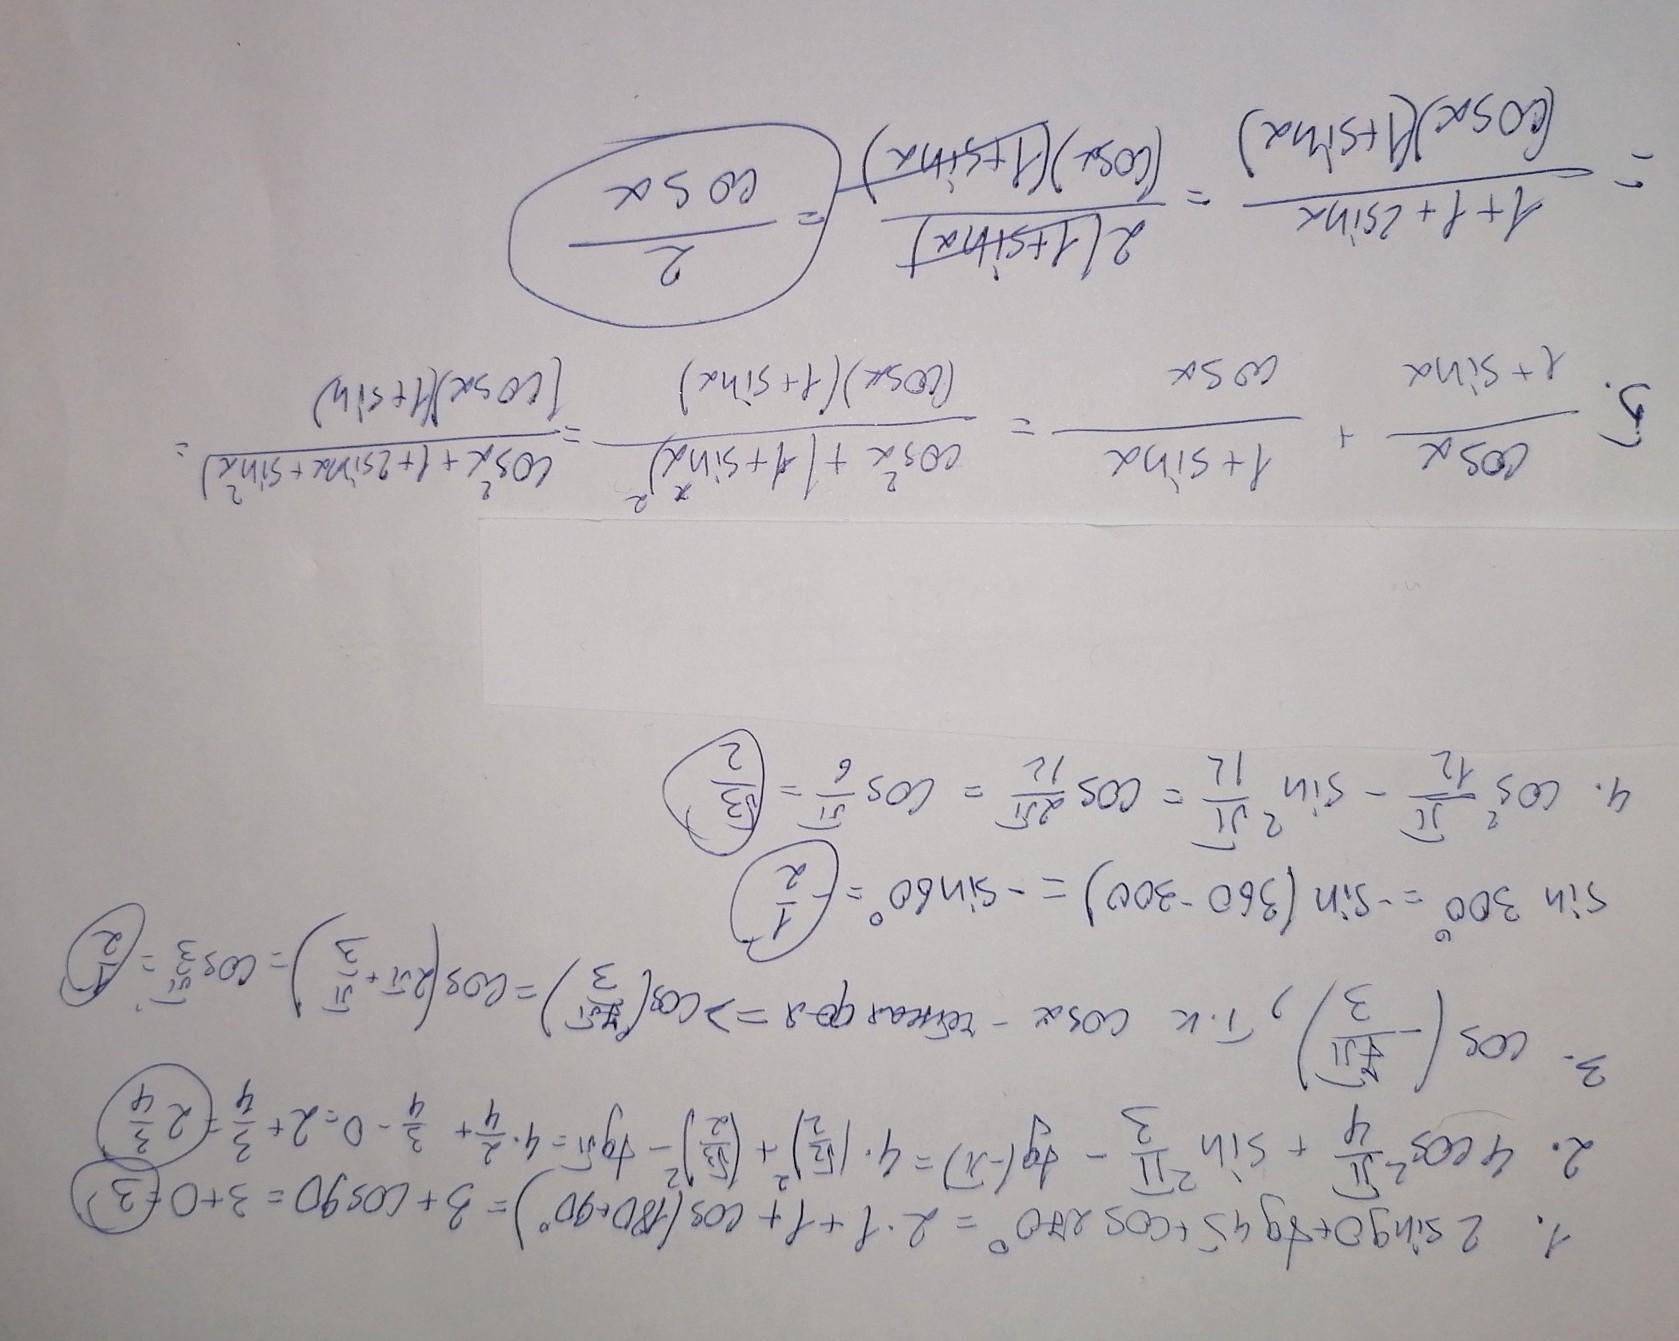 1. 2 sin90+tg45+cos270° = 2·1+1+cos(180+90°)=3+cos90=3+0=3
2. 4cos² π/4 + sin² π/3 - tg(-π)=4·(√2/2)²+(√3/2)²-tgπ=4·2/4+3/4-0=2+3/4=2 3/4
3. cos(-7π/3), т.к cosα - четная ф-я => cos(7π/3)=cos(2π+π/3)=cos π/3=1/2
sin 300° = -sin(360-300) = -sin60° = -1/2
4. cos² π/12 - sin² π/12 = cos 2π/12 = cos π/6 = √3/2
5. cosα/(1+sinα) + (1+sinα)/cosα = (cos²α+(1+sinα)²)/((cosα)(1+sinα)) = (cos²α+1+2sinα+sin²α)/((cosα)(1+sin)) =
= (1+1+2sinα)/((cosα)(1+sinα)) = 2(1+sinα)/((cosα)(1+sinα)) = 2/cosα